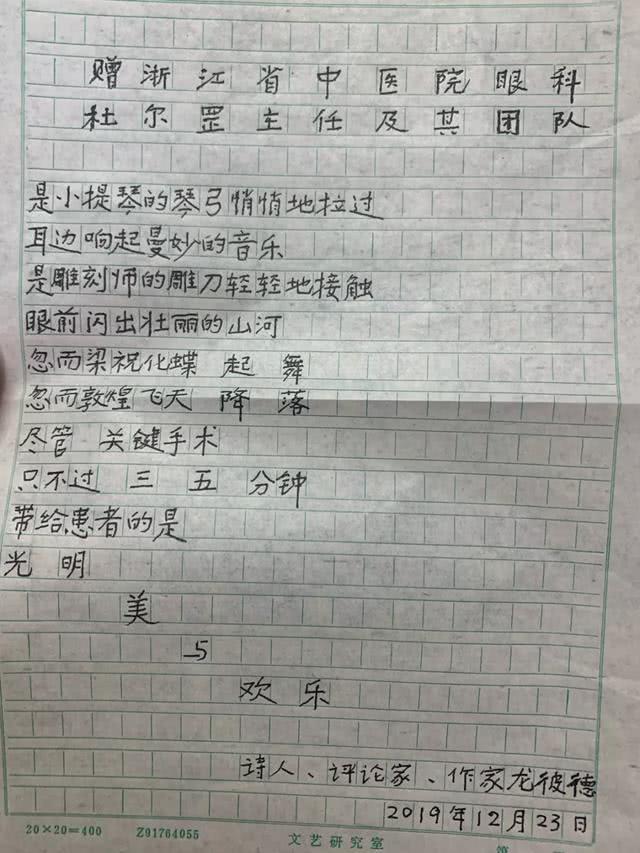 赠浙江省中医院眼科
杜尔罡主任及其团队
是小提琴的琴弓悄悄地拉过
耳边响起曼妙的音乐
是雕刻师的雕刀轻轻地接触
眼前闪出壮丽的山河
忽而梁祝化蝶 起 舞
忽而敦煌飞天 降 落
尽管 关键手术
只不过 三 五 分钟
带给患者的是
光 明
美
与
欢 乐
诗人、评论家、作家龙彼德
2019年12月23日
20×20=400 Z91764055 文艺研究室 第